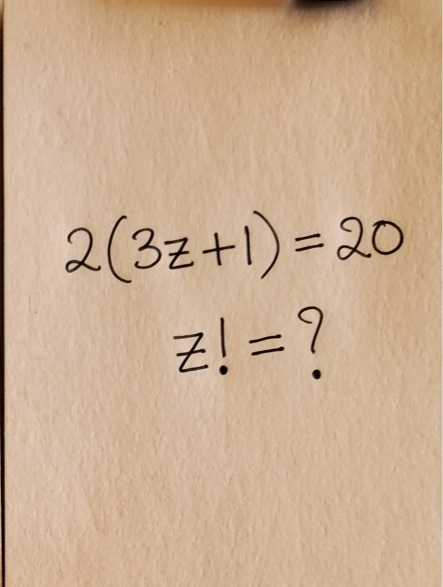 2(3z+1)=20
z!=?